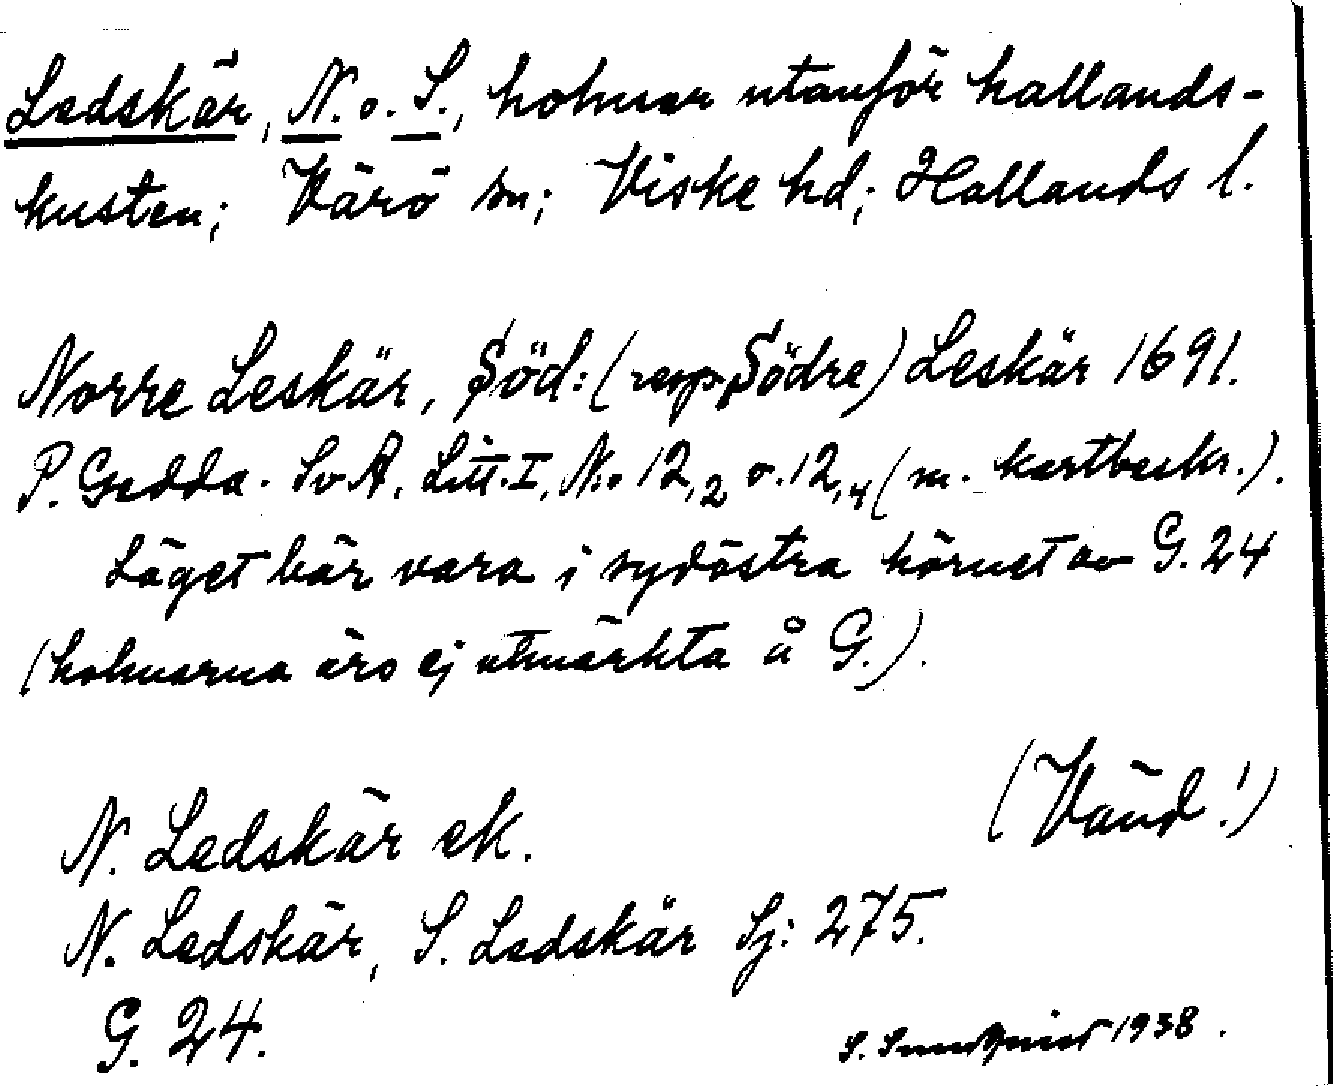 Ledskär, N. o. S., holmar utanför hallands-
kusten; Värö sn; Viske hd; Hallands l.
Norre Leskär, Söd: (resp. Södre) Leskär 1691.
P. Gedda. SvA. Litt. I, No 12,2 o. 12,4 (m. kartbeskr.).
Läget bör vara i sydöstra hörnet av G. 24
(holmarna äro ej utmärkta å G.).
(Vänd!)
N. Ledskär ek.
N. Ledskär, S. Ledskär Sj: 275.
G. 24.
S. Sundquist 1938.